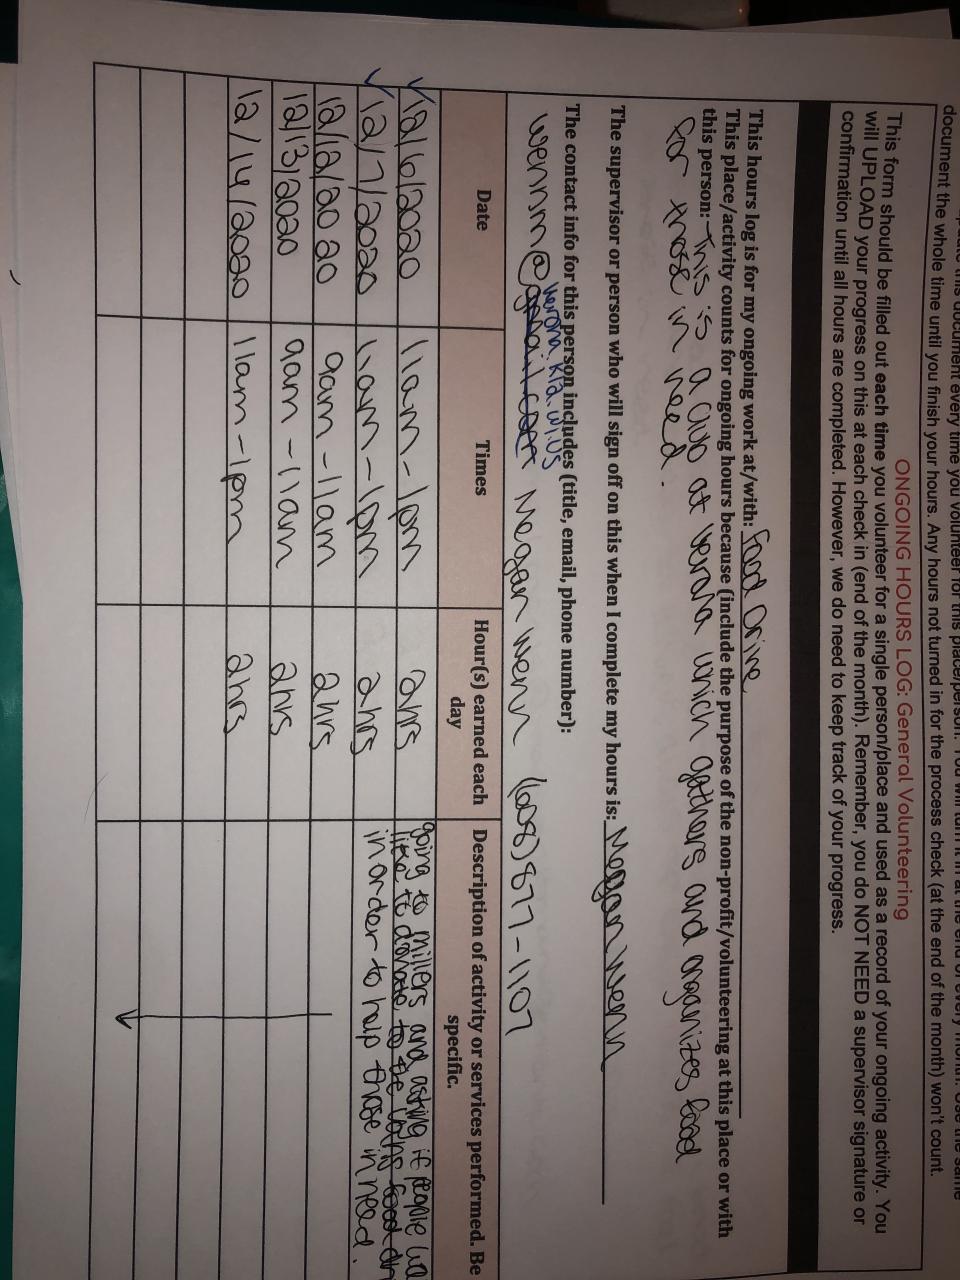 document every time you volunteer for this place/person. You will turn it in at the end of every month. Use the same
document the whole time until you finish your hours. Any hours not turned in for the process check (at the end of the month) won't count.
ONGOING HOURS LOG: General Volunteering
This form should be filled out each time you volunteer for a single person/place and used as a record of your ongoing activity. You
will UPLOAD your progress on this at each check in (end of the month). Remember, you do NOT NEED a supervisor signature or
confirmation until all hours are completed. However, we do need to keep track of your progress.
This hours log is for my ongoing work at/with: Food Drive
This place/activity counts for ongoing hours because (include the purpose of the non-profit/volunteering at this place or with
this person: This is a club at Verona which gathers and organizes food
for those in need.
The supervisor or person who will sign off on this when I complete my hours is: Megan Wenn
The contact info for this person includes (title, email, phone number):
verona.k12.wi.us
wennm@gmail.com Megan Wenn (608)877-1107
Date Times Hour(s) earned each day Description of activity or services performed. Be specific.
✓12/6/2020 11am-1pm 2hrs going to millers and asking if people
✓12/7/2020 11am-1pm 2hrs in order to help those in need.
12/12/2020 9am-11am 2hrs
12/13/2020 9am-11am 2hrs
12/14/2020 11am-1pm 2hrs